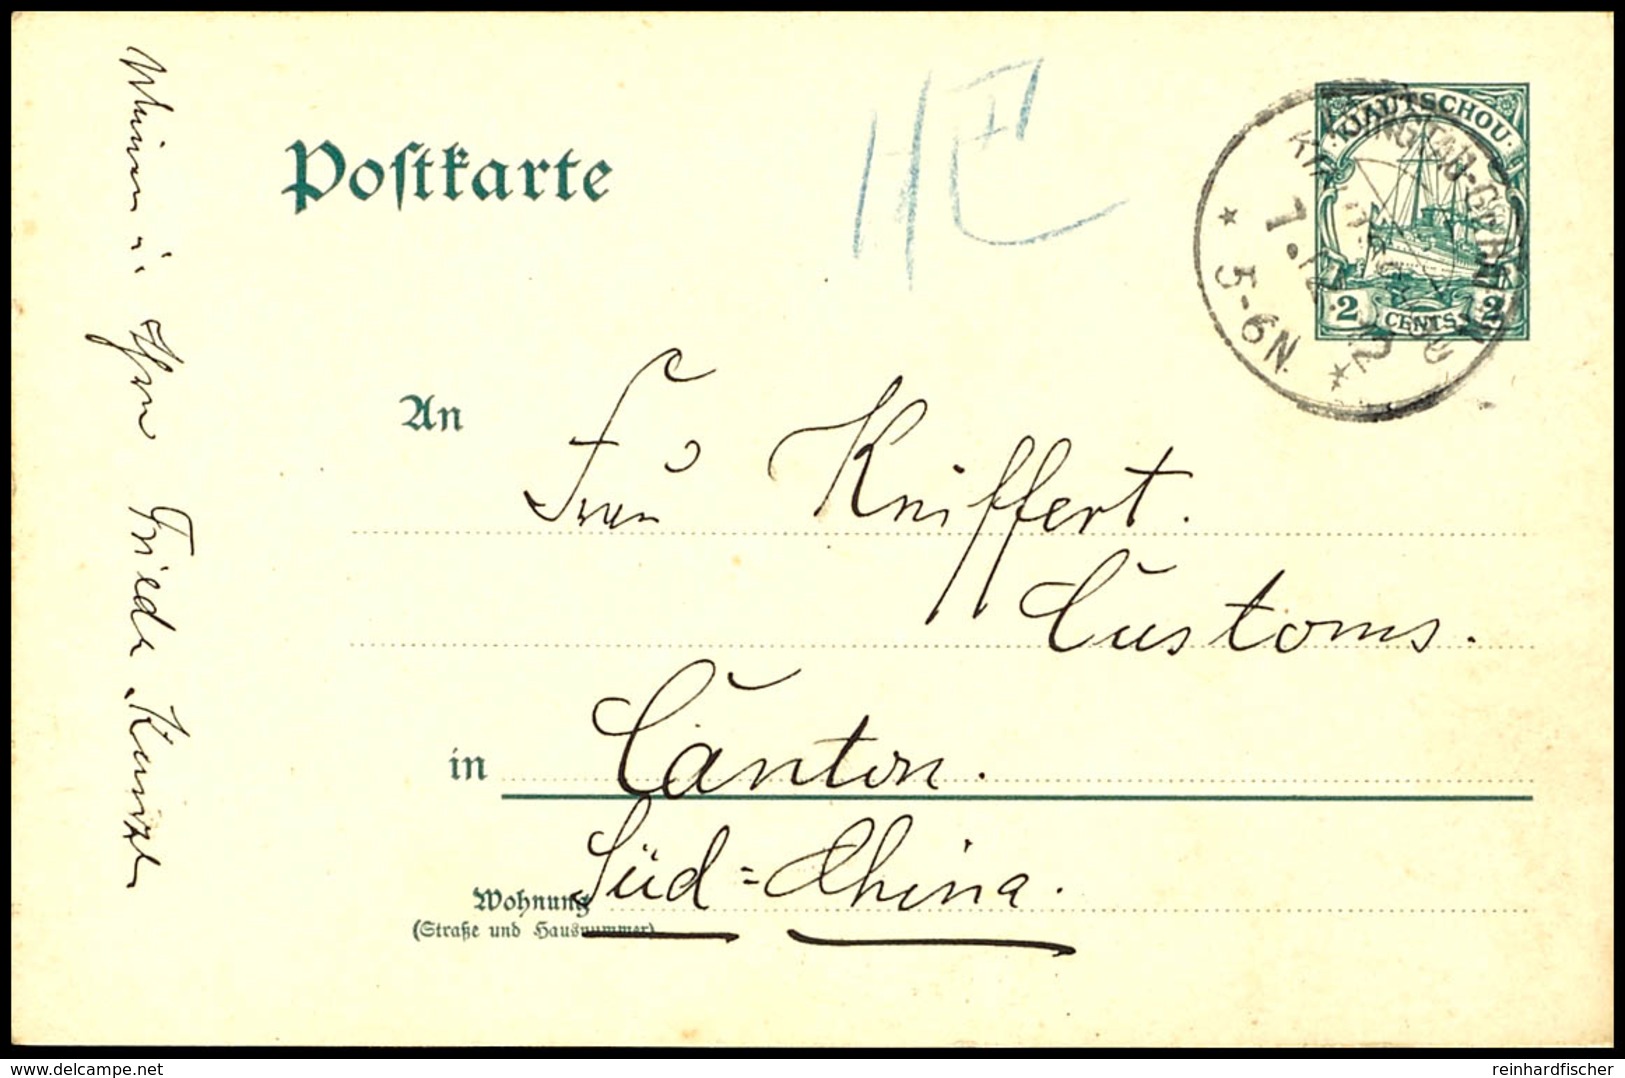 Postkarte
KIAUTSCHOU
2 CENTS 2
5-6N.
An Frau Kniffert.
Customs.
in Canton.
Süd=China.
Wohnung
(Straße und Hausnummer)
u. Ihre Friede Kunze
www.delcampe.net
reinhardfischer